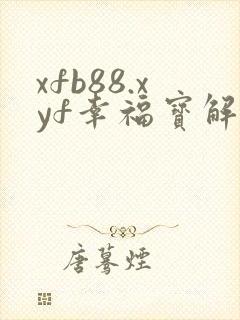 xfb88.x
yf幸福宝解
唐蓦烟